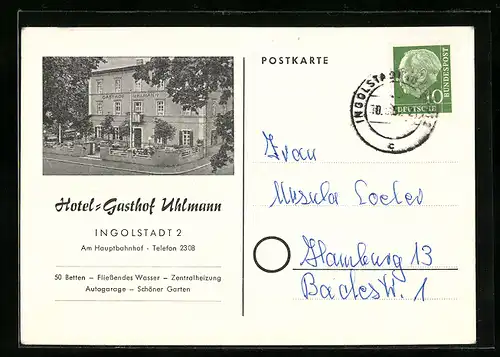 GASTHOF UHLMANN
Hotel=Gasthof Uhlmann
INGOLSTADT 2
Am Hauptbahnhof · Telefon 2308
50 Betten – Fließendes Wasser – Zentralheizung
Autogarage – Schöner Garten
POSTKARTE
INGOLSTADT
c
10
DEUTSCHE
BUNDESPOST
Frau
Ursula
Hamburg 13
Badestr. 1